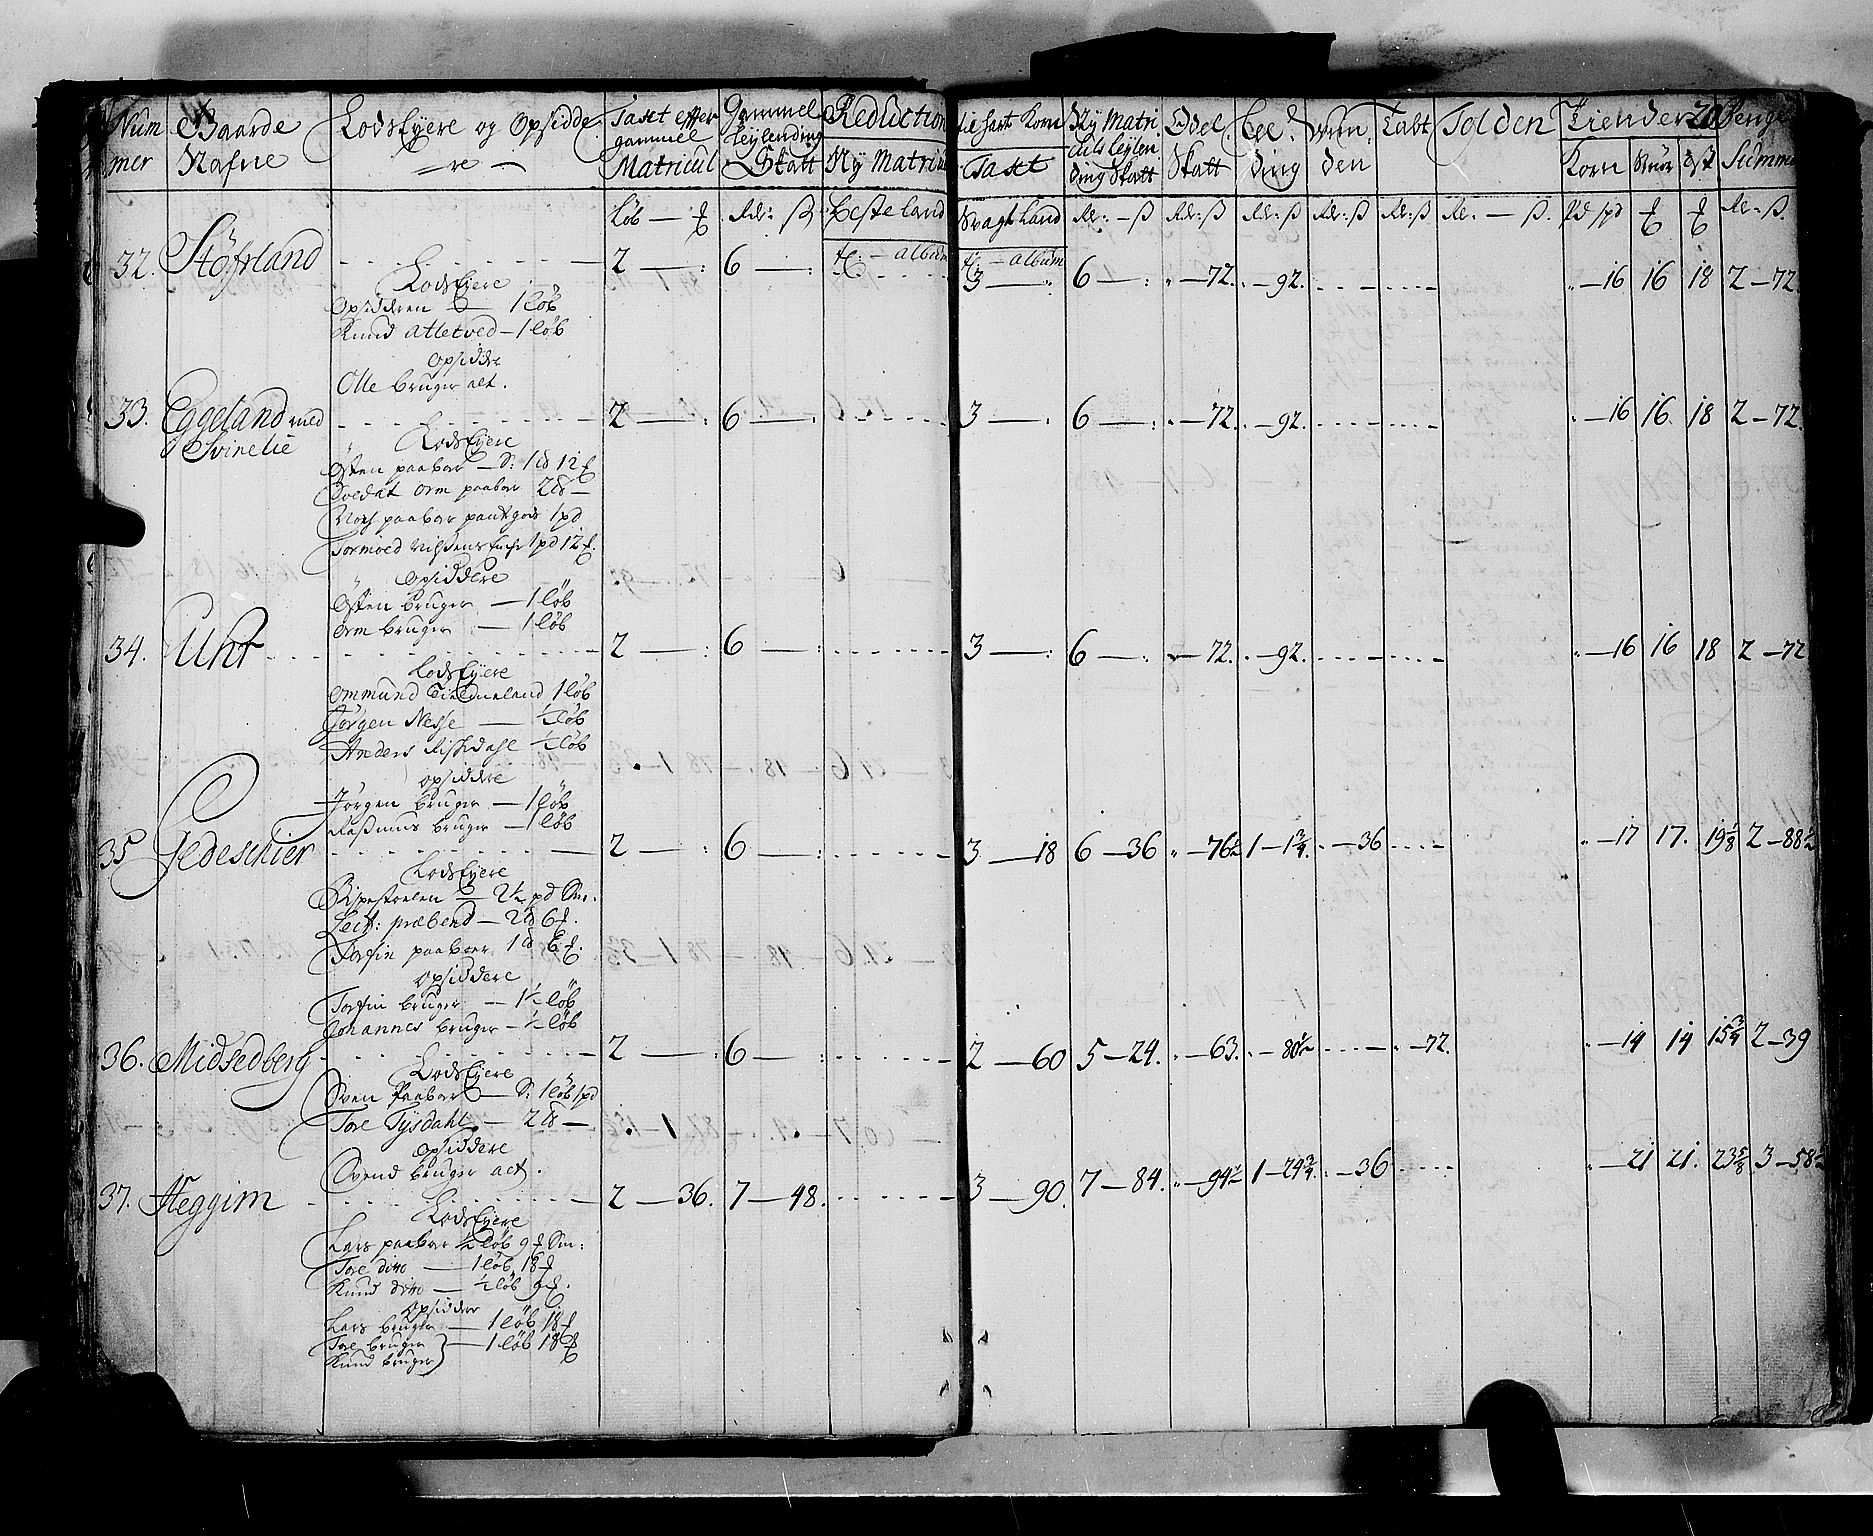 Num mer | Gaarde Nafne | Lodsejere og Opsiddere | Taxt efter gammel Matricul | Gammel Leylending Skatt | Reduction Ny Matricul | Hart Korn Taxt | Ny Matriculs Leylending Skatt | Odel Skatt | Leeding | Wunden | Tabt | Tolden | Tiender Korn Smør Ost | Penge Summa 20
Løb — ℔ | Rdr: ß | Heste land | Svagt Land | Rdr: — ß | Rdr: ß | Rdr: ß | Rdr: ß | Rdr: ß | Rdr: — ß | Pd spd | ℔ | ℔ | Rdr: ß
32. Støfrland 2 — : 6 — : tr. — album | tr. — album 3 — : 6 — : — 72. — 92. — 16 16 18 2 — 72.
Lodsejere
Opsidderen — 1 løb
Knud Atletved — 1 løb
Opsidder
Olle bruger alt.
33. Eggeland med 2 — : 6 — : 3 — : 6 — : — 72. — 92. — 16 16. 18 2 — 72.
Svinelie
Lodsejere
Østen paaboer — S: 1 d 12 ℔
Orm paaboer 2 d —
paaboer pantgods 1 pd
Tormoed 1 pd 12 ℔.
Opsiddere
Østen bruger — 1 løb
Orm bruger — 1 løb
34. Uhr 2 — : 6 — : 3 — : 6 — : — 72. — 92. — 16 16 18 2 — 72
Lodsejere
Ommund 1 løb
Jørgen Nesse — ½ løb
Anders Riskedahl ½ løb
Opsiddere
Jørgen bruger — 1 løb
Rasmus bruger — 1 løb
35 Gedeschier 2 — : 6 — : 3 — 18 6 — 36 — 76½ 1 — 1¾. — 36 — 17 17. 19⅛ 2 — 88½
Lodsejere
Bispestoelen — 2½ pd Sm:
Lect: præbend — 2 d 6 ℔.
Torfin paaboer 1 d 6 ℔.
Opsiddere
Torfin bruger — 1½ løb
Johannes bruger — ½ løb
36. Midsedberg 2 — : 6 — : 2 — 60 5 — 24. — 63. — 80½ — 72. — 14 14 15¾ 2 — 39
Lodsejere
Sven Paaboer — S: 1 løb 1 pd
Tore Tysdahl — 2 d —
Opsiddere
Svend bruger alt.
37. Heggim 2 — 36. 7 — 48. 3 — 90. 7 — 84. — 94½ 1 — 24¾. — 36 — 21 21. 23⅝ 3 — 58½
Lodsejere
Lars paaboer ½ løb 9 ℔ Sm:
Tore ditto — 1 løb 18 ℔
Knud ditto — ½ løb 9 ℔.
Opsidder
Lars bruger — 1 løb 18 ℔
Tore bruger } — 1 løb 18 ℔
Knud bruger